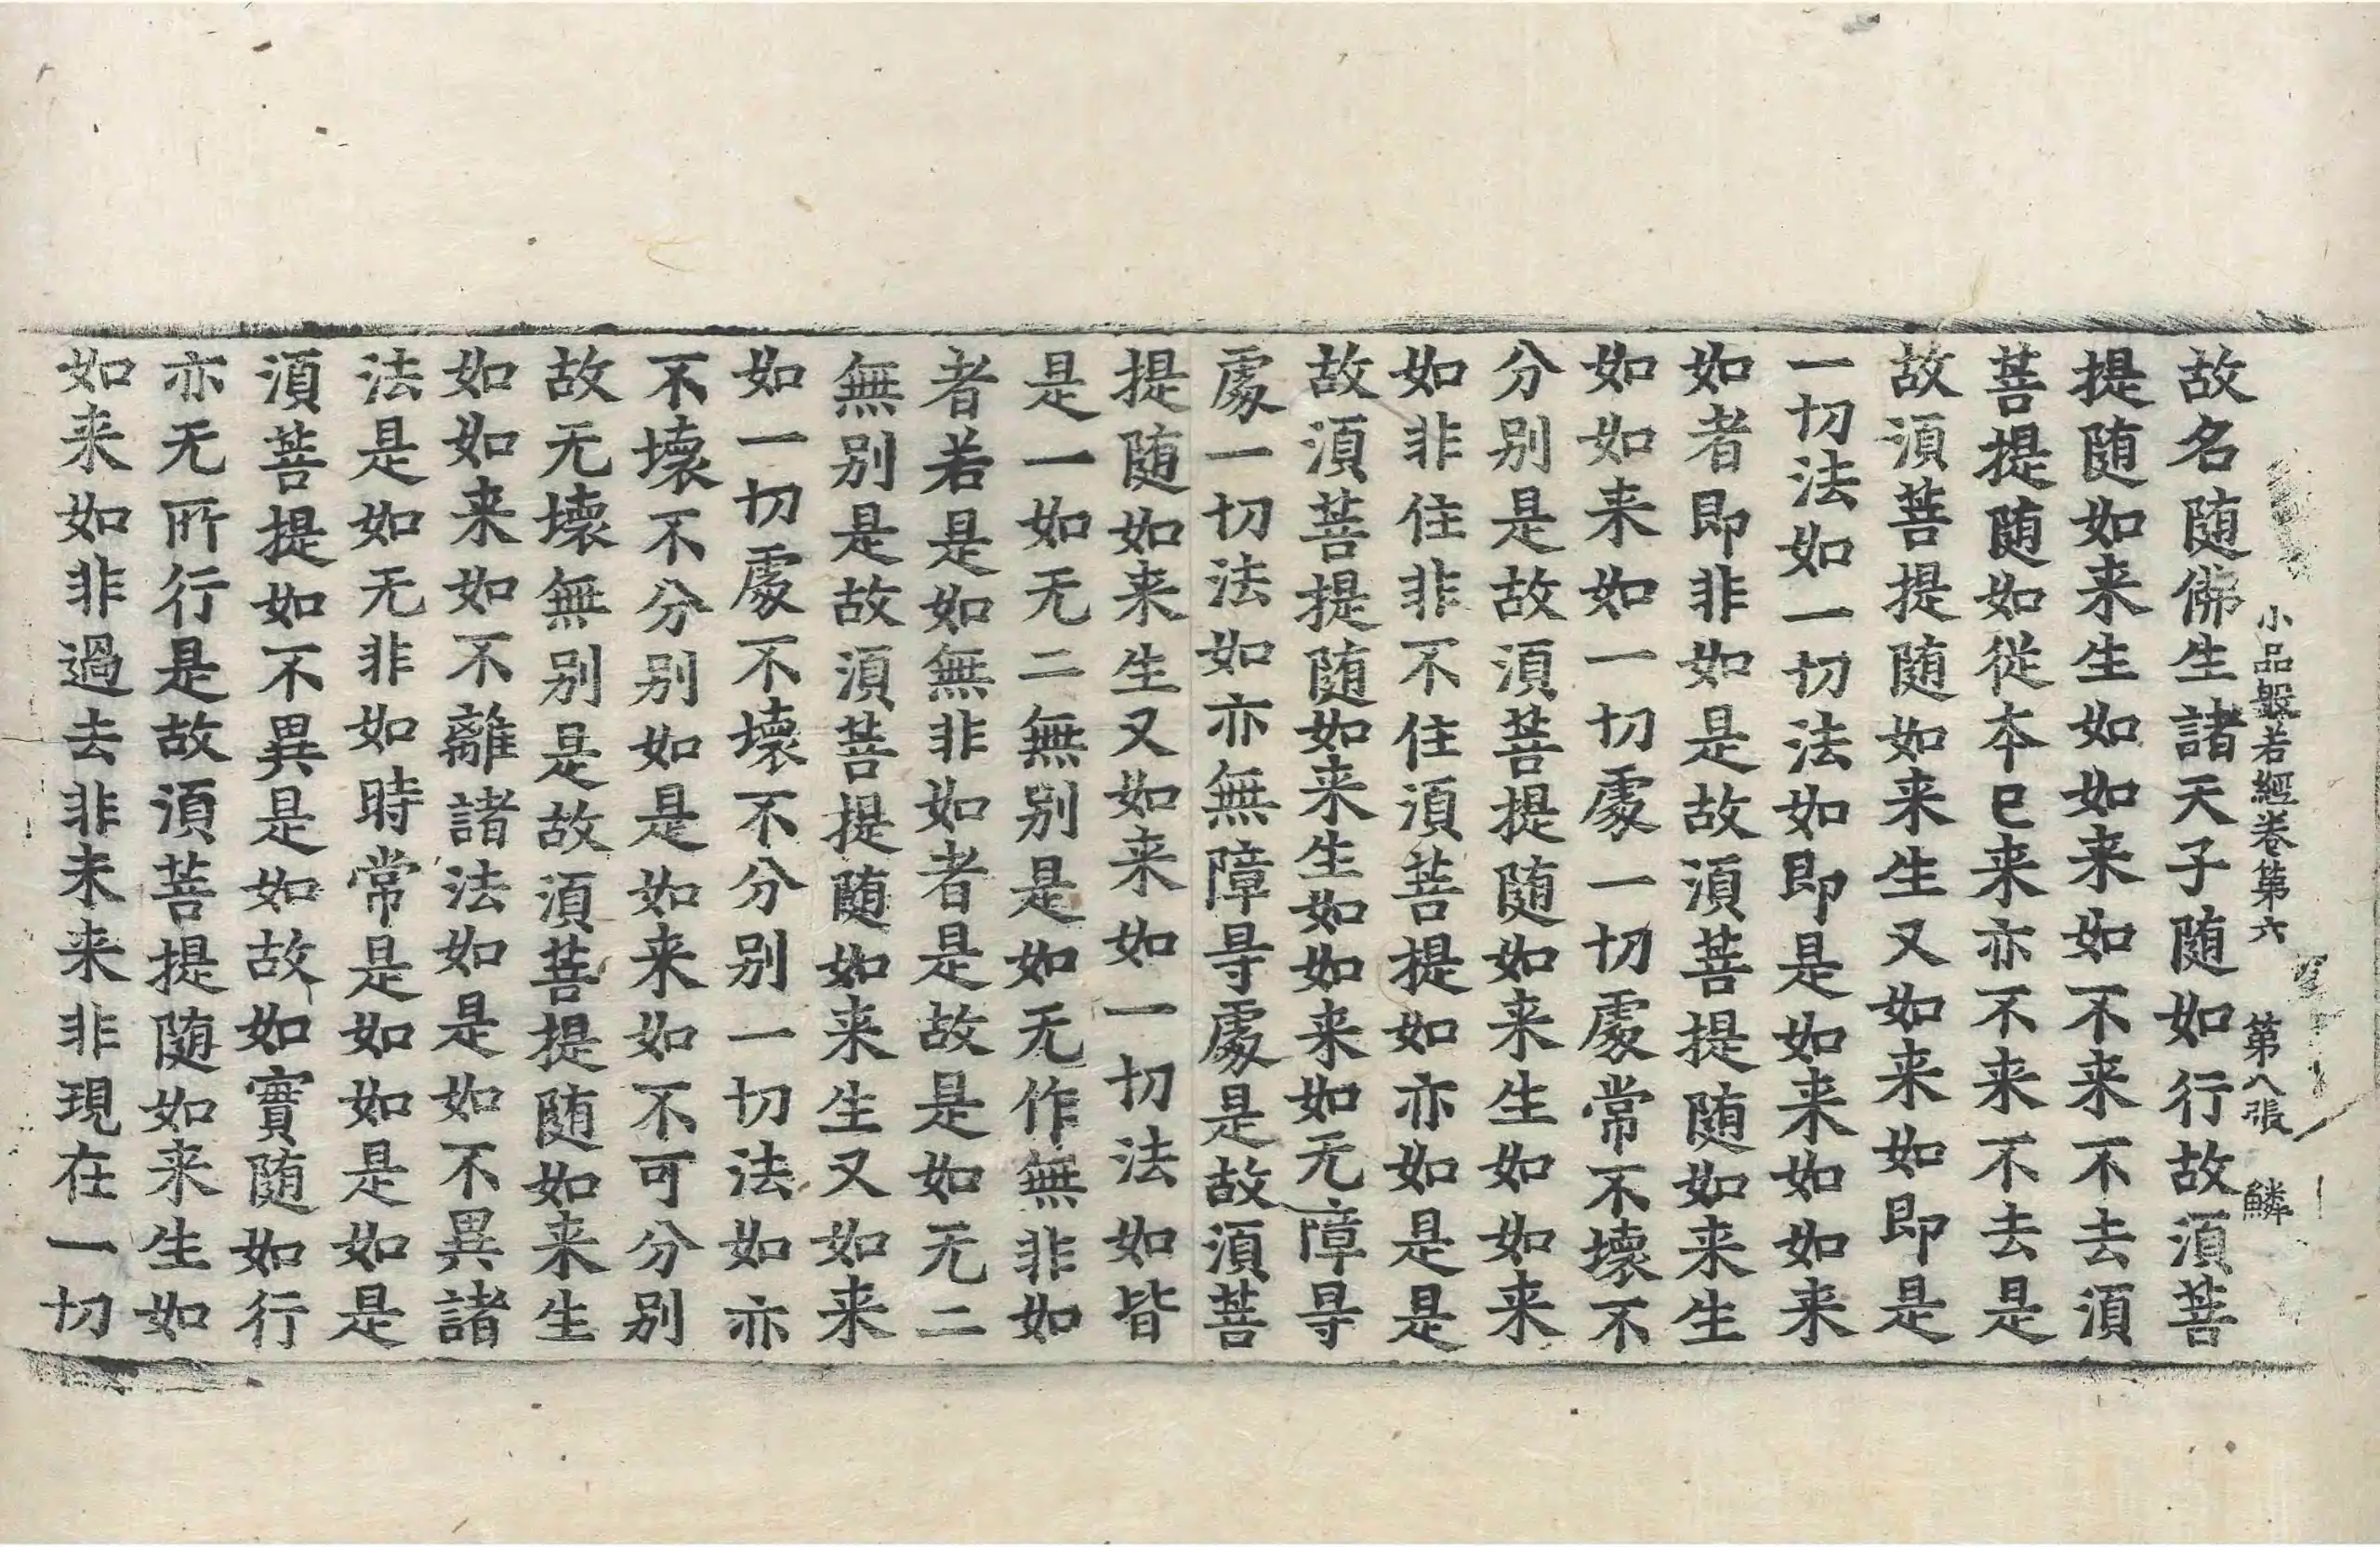 小品般若經卷第六　第八張　鱗
故名随佛生諸天子随如行故湏菩
提随如来生如如来如不来不去湏
菩提随如從本已来亦不来不去是
故湏菩提随如来生又如来如即是
一切法如一切法如即是如来如如来
如者即非如是故湏菩提随如来生
如如来如一切處一切處常不壞不
分别是故湏菩提随如来生如如来
如非住非不住湏菩提如亦如是是
故湏菩提随如来生如如来如无障㝵
處一切法如亦無障㝵處是故湏菩
提随如来生又如来如一切法如皆
是一如无二無别是如无作無非如
者若是如無非如者是故是如无二
無别是故湏菩提随如来生又如来
如一切處不壞不分别一切法如亦
不壞不分别如是如来如不可分别
故无壞無别是故湏菩提随如来生
如如来如不離諸法如是如不異諸
法是如无非如時常是如如是如是
湏菩提如不異是如故如實随如行
亦无所行是故湏菩提随如来生如
如来如非過去非未来非現在一切